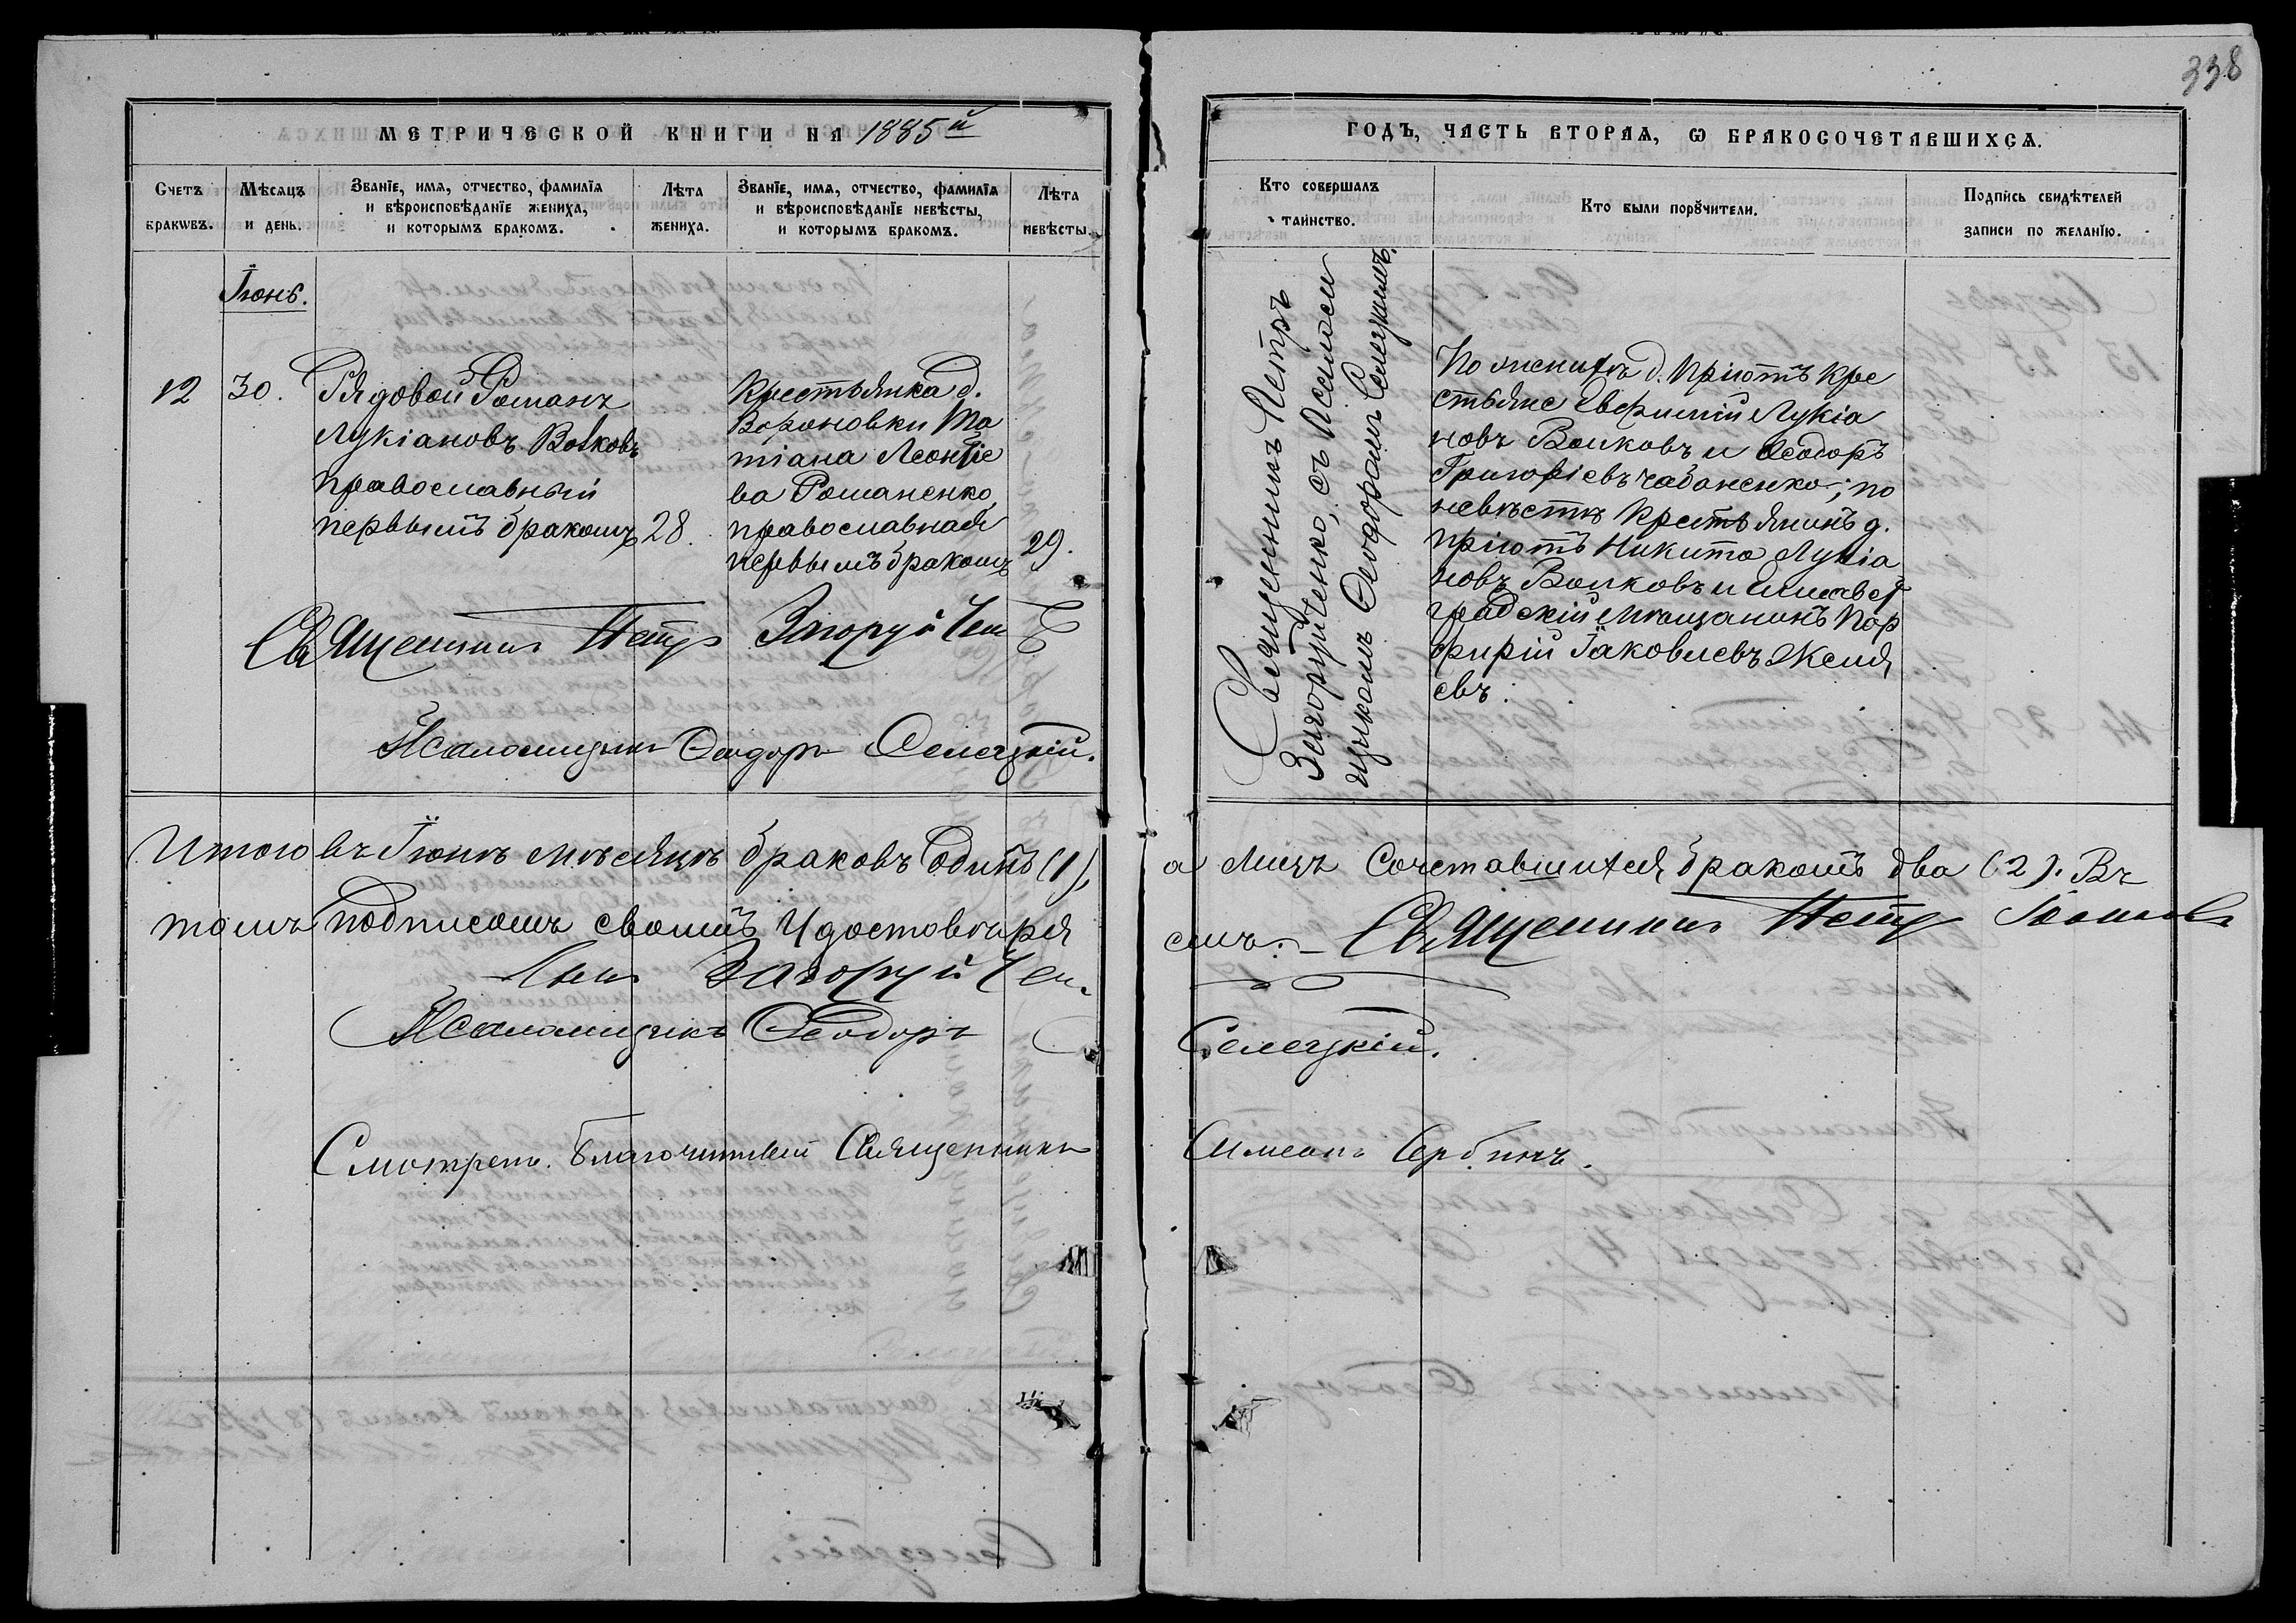 338
МЕТРИЧЕСКОЙ КНИГИ НА 1885й
ГОДЪ, ЧАСТЬ ВТОРАѦ, Ѡ БРАКОСОЧЕТАВШИХСѦ.
Счетъ
браковъ.
Мѣсяцъ
и день.
Званїе, имѧ, отчество, фамилїѧ
и вѣроисповѣданїе жениха,
и которымъ бракомъ.
Лѣта
жениха.
Званїе, имѧ, отчество, фамилїѧ
и вѣроисповѣданїе невѣсты,
и которымъ бракомъ.
Лѣта
невѣсты.
Кто совершалъ
таинство.
Кто были порꙋчители.
Подпись свидѣтелей
записи по желанїю.
Іюнь.
12
30.
Рядовой Романъ
Лукіановъ Волковъ
православный
первымъ бракомъ
28.
Крестьянка д.
Вороновки Та
тіана Леонтіе
ва Романенко,
православная
первымъ бракомъ
29.
Священникъ Петръ
Загоруйченко, съ Псаломщи
цикомъ Ѳеодоромъ Селецкимъ.
По женихѣ д. Пріютъ кре
стьяне Евфимій Лукіа
новъ Волковъ и Ѳеодоръ
Григоріевъ Чабаненко; по
невѣстѣ крестьянинъ д.
Пріютъ Никита Лукіа
новъ Волковъ и Елисавет
градскій мѣщанинъ Пор
фирій Іаковлевъ Женя
евъ.
Священникъ Петръ Загоруйчен
Псаломщикъ Ѳеодоръ Селецкій.
Итого въ Іюнѣ мѣсяцѣ браковъ одинъ (1),
а лицъ сочетавшихся бракомъ два (2). Въ
томъ подписомъ своимъ удостовѣря
емъ: – Священникъ Петръ Іоаннов
Загоруйчен.
Псаломщикъ Ѳеодоръ
Селецкій.
Смотрел. Благочинный Священникъ
Симеонъ Сербинъ.